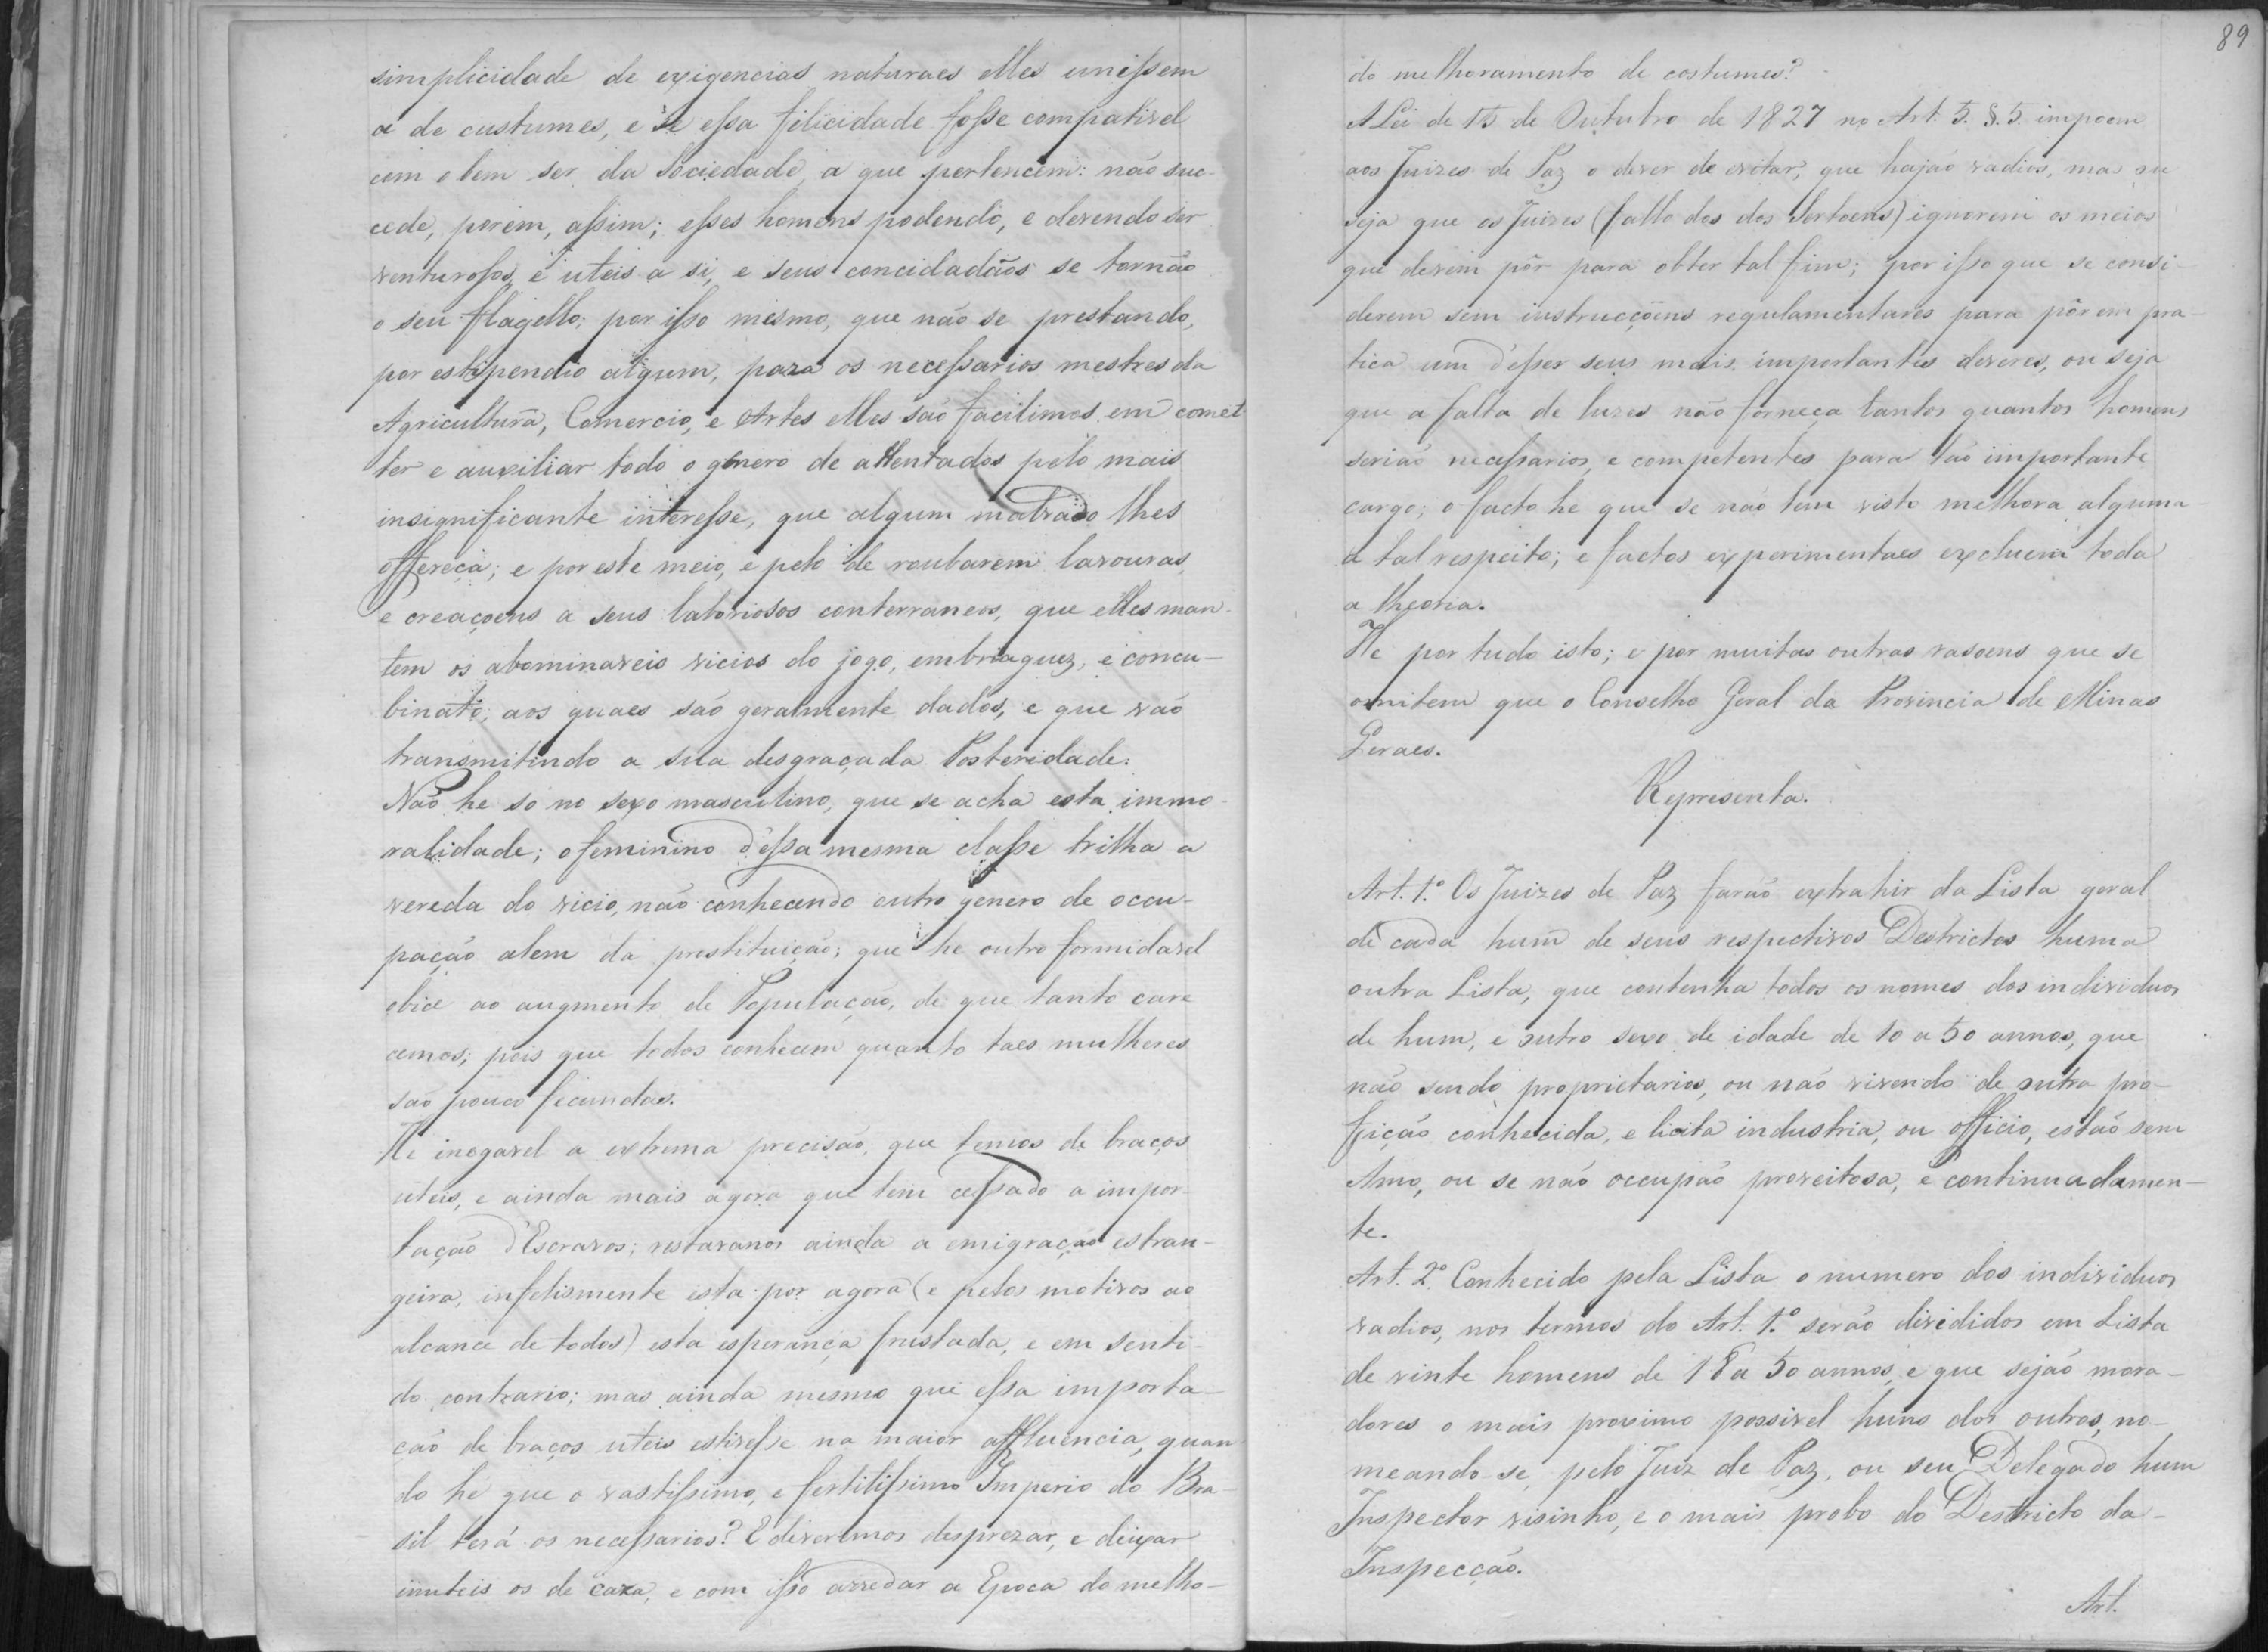 simplicidade de exigencias naturaes elles unissem
a de custumes, e se essa filicidade fosse compativel
com o bem ser da Sociedade, a que pertencem: não suc-
cede, porem, assim; esses homens podendo, e devendo ser
venturosos, e uteis a si, e seus concidadãos se tornão
o seu flagello; por isso mesmo, que não se prestando,
por estipendio algum, para os necessarios mestres da
Agricultura, Comercio, e Artes elles são facilimos em comet-
ter e auxiliar todo o genero de attentados pelo mais
insignificante interesse, que algum malvado lhes
offereça; e por este meio, e pelo de roubarem lavouras,
e creaçoens a seus laboriosos conterraneos, que elles man-
tem os abominaveis vicios do jogo, embriaguez, e concu-
binato, aos quaes são geralmente dados, e que vão
transmitindo a sua desgraçada Posteridade.
Não he so no sexo masculino, que se acha esta immo-
ralidade; o feminino d'essa mesma classe trilha a
vereda do vicio, não conhecendo outro genero de occu-
pação alem da prostituição; que he outro formidavel
obice ao augmento de População, de que tanto care
cemos; pois que todos conhecem quanto taes mulheres
são pouco fecundas.
He inegavel a extrema precisão, que temos de braços
uteis, e ainda mais agora que tem cessado a impor-
tação d'Escravos; restavanos ainda a emigração estran-
geira, infelismente esta por agora (e pelos motivos ao
alcance de todos) esta esperança frustada, e em senti-
do contrario; mas ainda mesmo que essa importa-
cão de braços uteis estivesse na maior affluencia, quan-
do he que o vastissimo, e fertilissimo Imperio do Bra-
sil terá os necessarios? E deveremos desprezar, e deixar
inuteis os de caza, e com isso arredar a Epoca do melho-
89
do melhoramento de costumes?
A Lei de 15 de Outubro de 1827 no Art. 5. §. 5. impoem
aos Juizes de Paz o dever de evitar, que hajão vadios, ma ou
seja que os Juizes (fallo dos dos Sertoens) ignorem os meios
que devem pôr para obter tal fim; por isso que se consi-
derem sem instrucçoens regulamentares para pôr em pra-
tica um d'esser seus mais importantes deveres, ou seja
que a falta de luzes não forneça tantos quantos homens
serião necessarios, e competentes para tão importante
cargo; o facto he que se não tem visto melhora alguma
a tal respeito; e factos experimentaes excluem toda
a theoria.
He por tudo isto; e por muitas outras rasoens que se
omitem que o Conselho Geral da Provincia de Minas
Geraes.
Representa.
Art. 1.º Os Juizes de Paz farão extrahir da Lista geral
de cada hum de seus respectivos Destrictos huma
outra Lista, que contenha todos os nomes dos individuos
de hum, e outro sexo de idade de 10 a 50 annos, que
não sendo proprietarios, ou não vivendo de outra pro-
fição conhecida, e licita industria, ou officio, estão sem
Amo, ou se não occupão proveitosa, e continuadamen-
te.
Art. 2.º Conhecido pela Lista o numero dos individuos
vadios, nos termos do Art. 1.º serão divididos em Lista
de vinte homens de 18 a 50 annos, e que sejão mora-
dores o mais proximo possivel huns dos outros, no-
meando-se, pelo Juiz de Paz, ou seu Delegado hum
Inspector visinho, e o mais probo do Destricto da-
Inspecção.
Art.